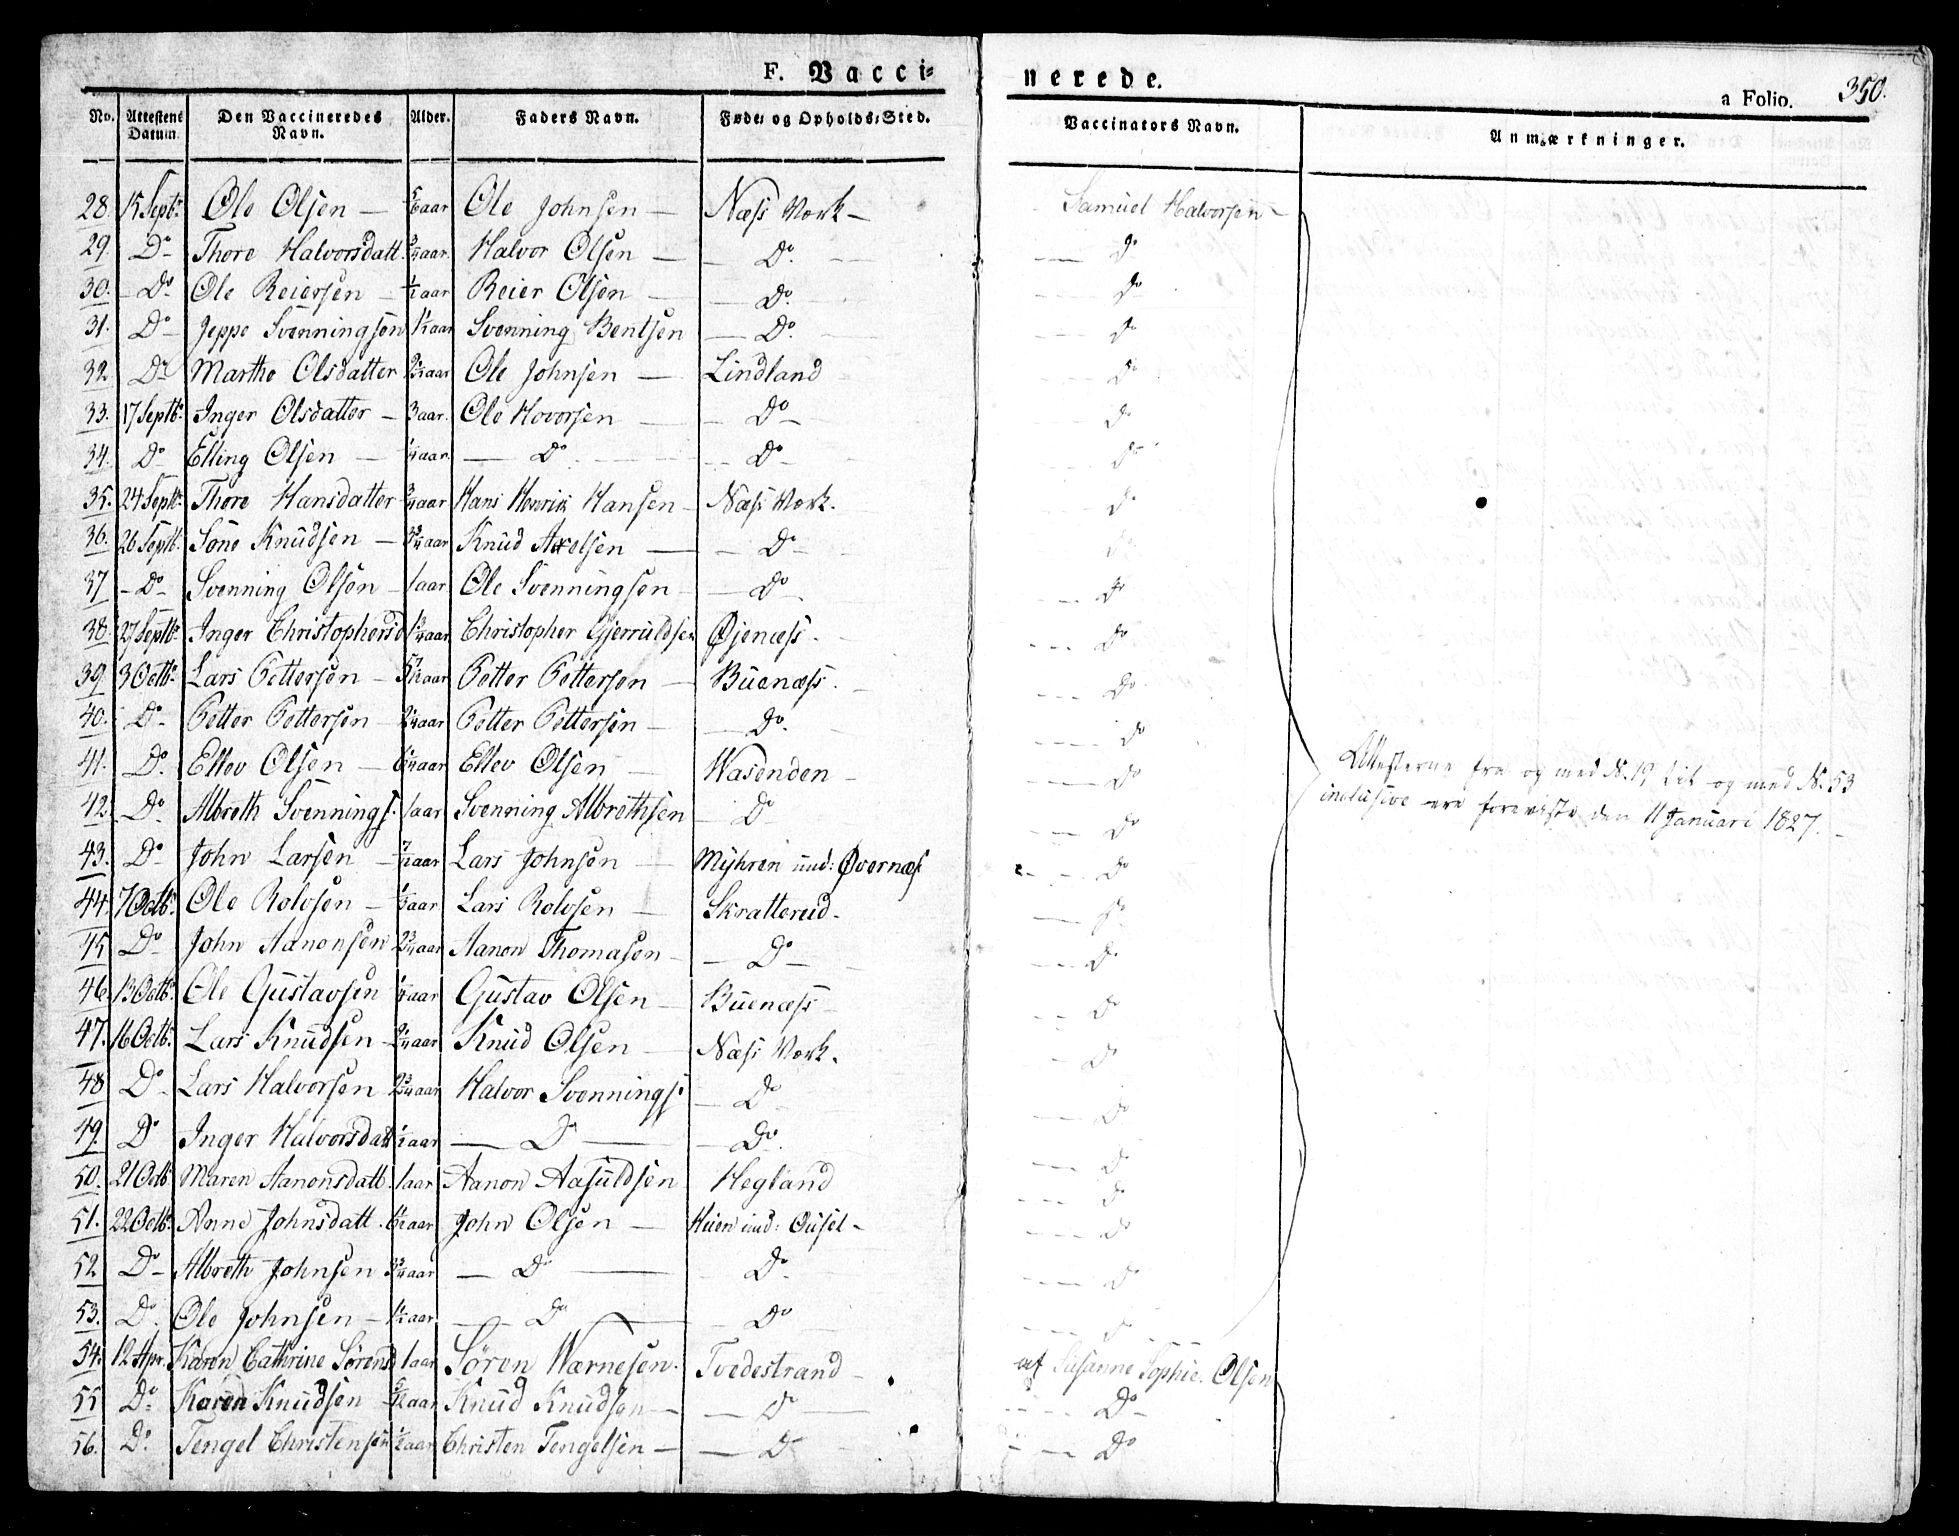 F. Vacci-
nerede.
a Folio. 350.
No. | Attestens Datum | Den Vaccineredes Navn. | Alder. | Faders Navn. | Føde- og Opholds-Sted. | Vaccinators Navn. | Anmærkninger.
28. 15 Septbr Ole Olsen — aar Ole Johnsen — Næss Værk — Samuel Halvorsen —
29. Do Thore Halvorsdatt. 3/4 aar. Halvor Olsen — Do. — do
30. Do Ole Reiersen — 1/2 aar Reier Olsen — Do. — do
31. Do Jeppe Svenningsen 1 1/2 aar Svenning Bentsen — Do. — do
32 Do Marthe Olsdatter aar Ole Johnsen — Lindland — do
33. 17 Septbr Inger Olsdatter — 3 aar. Ole Hovorsen — Do — do
34. Do Elling Olsen — aar — Do — Do — do
35. 24 Septbr Thore Hansdatter 3/4 aar Hans Henrik Hansen — Næss Værk. — do
36. 26 Septbr. Søne Knudsen — aar Knud Axelsen — Do — do
37 — Do Svenning Olsen — 1 aar Ole Svenningsen — Do — do
38. 27 Septbr Inger Christophersd aar Christopher Gjerruldsen Øjenæss. — do
39. 3 Octbr Lars Pettersen — aar Petter Pettersen — Buenæss. — do
40. Do Petter Pettersen — aar Petter Pettersen — Do. — do
41. Do. Ellev Olsen — aar Ellev Olsen — Wasenden — Do
42. Do Albreth Svennings. 1 aar Svenning Albrethsen — Do — do
43. Do John Larsen — aar Lars Johnsen — Myhren und: Øvernæs — do
44. 7 Octbr. Ole Rolvsen — aar Lars Rolvsen — Skratterud — do
45 Do John Aanonsen 2 3/4 aar Aanon Thomasen — Do — do
46. 13 Octbr. Ole Gustavsen aar Gustav Olsen — Buenæss — do
47. 16 Octbr. Lars Knudsen — aar Knud Olsen — Næss Værk. — do
48 Do Lars Halvorsen 2 3/4 aar Halvor Svennings. — Do — do
49. Do Inger Halvorsdatt 1/2 aar — Do — Do. — do
50. 21 Octb Maren Aanonsdatt. 1 aar Aanon Aasuldsen Hegland — do
51. 22 Octbr. Anne Johnsdatt. aar John Olsen — Heien und: Ousel — do
52 Do Albreth Johnsen aar — Do — Do — do
53. Do. Ole Johnsen — 1 1/2 aar — Do — Do — do
54. 12 Apr. Karen Cathrine Sørensd 1 aar Søren Warnesen. Tvedestrand — af Susanne Sophie Olsen
55 Do Karen Knudsen aar Knud Knudsen — do — Do
56. Do. Tengel Christensen 1/2 aar Christen Tengelsen — Do — Do
Attesterne fra og med N. 19 til og med N. 53
inclusive ere foreviste den 11 Januari 1827. —